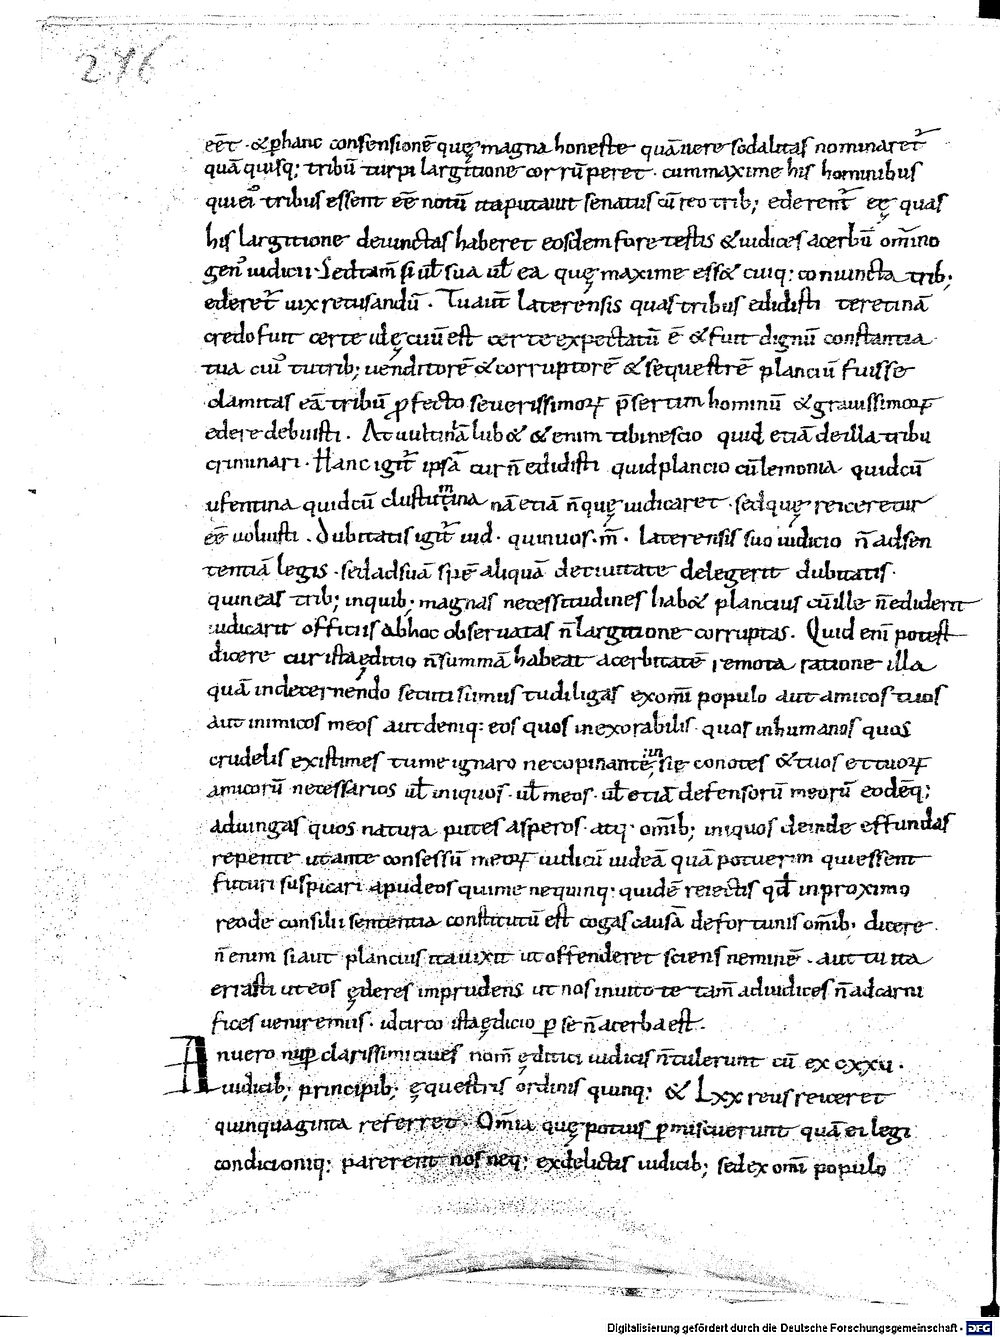 276
eēt · & ꝑhanc consensionē quę magna honeste quā uere sodalitas nominaret᷒
quā quisq; tribū turpi largitione corrūperet · cum maxime his hominibus
qui ei᷒ tribus essent eē notū ita putauit senatus cū reo trib; ederent᷒ eę quas
his largitione deiunctas haberet eosdem fore testis & iudices acerbū om̄ino
gen᷒ iudicii · Sed tam̄ si ul̄ sua ul̄ ea quę maxime ess& cuiq: coniuncta trib;
ederet᷒ uix recusandū · Tu aut̄ laterensis quas tribus edidisti teretinā
credo fuit certe id ęcuū est certe expectatū ē & fuit dignū constantia
tua cui᷒ tu trib; uenditorē & corruptorē & sequestrē planciū fuisse
clamitas eā tribū ꝓfecto seuerissimoꝝ p̄sertim hominū & grauissimoꝝ
edere debuisti · At uultinā lub& & enim tibi nescio quid etiā de illa tribu
criminari · Hanc igit᷒ ipsā cur n̄ edidisti quid plancio cū lemonia quid cū
ufentina quid cū clustumina nā etiā n̄ quę iudicaret · sed quę reiceretur
eē uoluisti . Dubitatis igit᷒ iud · quin uos · m̄ · laterensis suo iudicio n̄ ad sen
tentiā legis · sed ad suā spē aliquā de ciuitate delegerit dubitatis ·
quin eas trib; in quib; magnas necessitudines hab& plancius cū ille n̄ediderit
iudicarit officiis ab hoc obseruatas n̄ largitione corruptas . Quid eni potest
dicere cur ista ęditio n̄ summā habeat acerbitatē remota ratione illa
quā in decernendo secuti sumus tu diligas ex om̄i populo aut amicos tuos
aut inimicos meos aut deniq: eos quos inexorabilis quos inhumanos quos
crudelis existimes tu me ignaro nec opinante, &tuos et tuoꝝ
amicorū necessarios ul̄ iniquos · ul̄ meos · ul̄ etiā defensorū meorū eodēq;
adiungas quos natura putes asperos · atq· om̄ib; iniquos deinde effundas
repente ut ante consessū meoꝝ iudicū uideā quā potuerim qui essent
futuri suspicari apud eos qui me ne quinq: quidē reiectis qd̄ in proximo
reo de consilii sententia constitutū est cogas causā de fortunis om̄ib· dicere .
n̄ enim si aut plancius ita uixit ut offenderet sciens neminē · aut tu ita
errasti ut eos ęderes imprudens ut nos inuito te tam̄ ad iudices n̄ ad carni
fices ueniremus · idcirco ista ędicio ꝑ se n̄ acerba est .
An uero nuꝑ clarissimi ciues nom̄ ęditici iudicis n̄ tulerunt cū ex cxxu .
iudicib; principib; ęquestris ordinis quinq; & Lxx reus reiceret
quinquaginta referret · Om̄ia quę potius ꝑmiscuerunt quā ei legi
condicioniq: parerent nos neq; ex delictis iudicib; sed ex om̄i populo
Digitalisierung gefördert durch die Deutsche Forschungsgemeinschaft - DFG